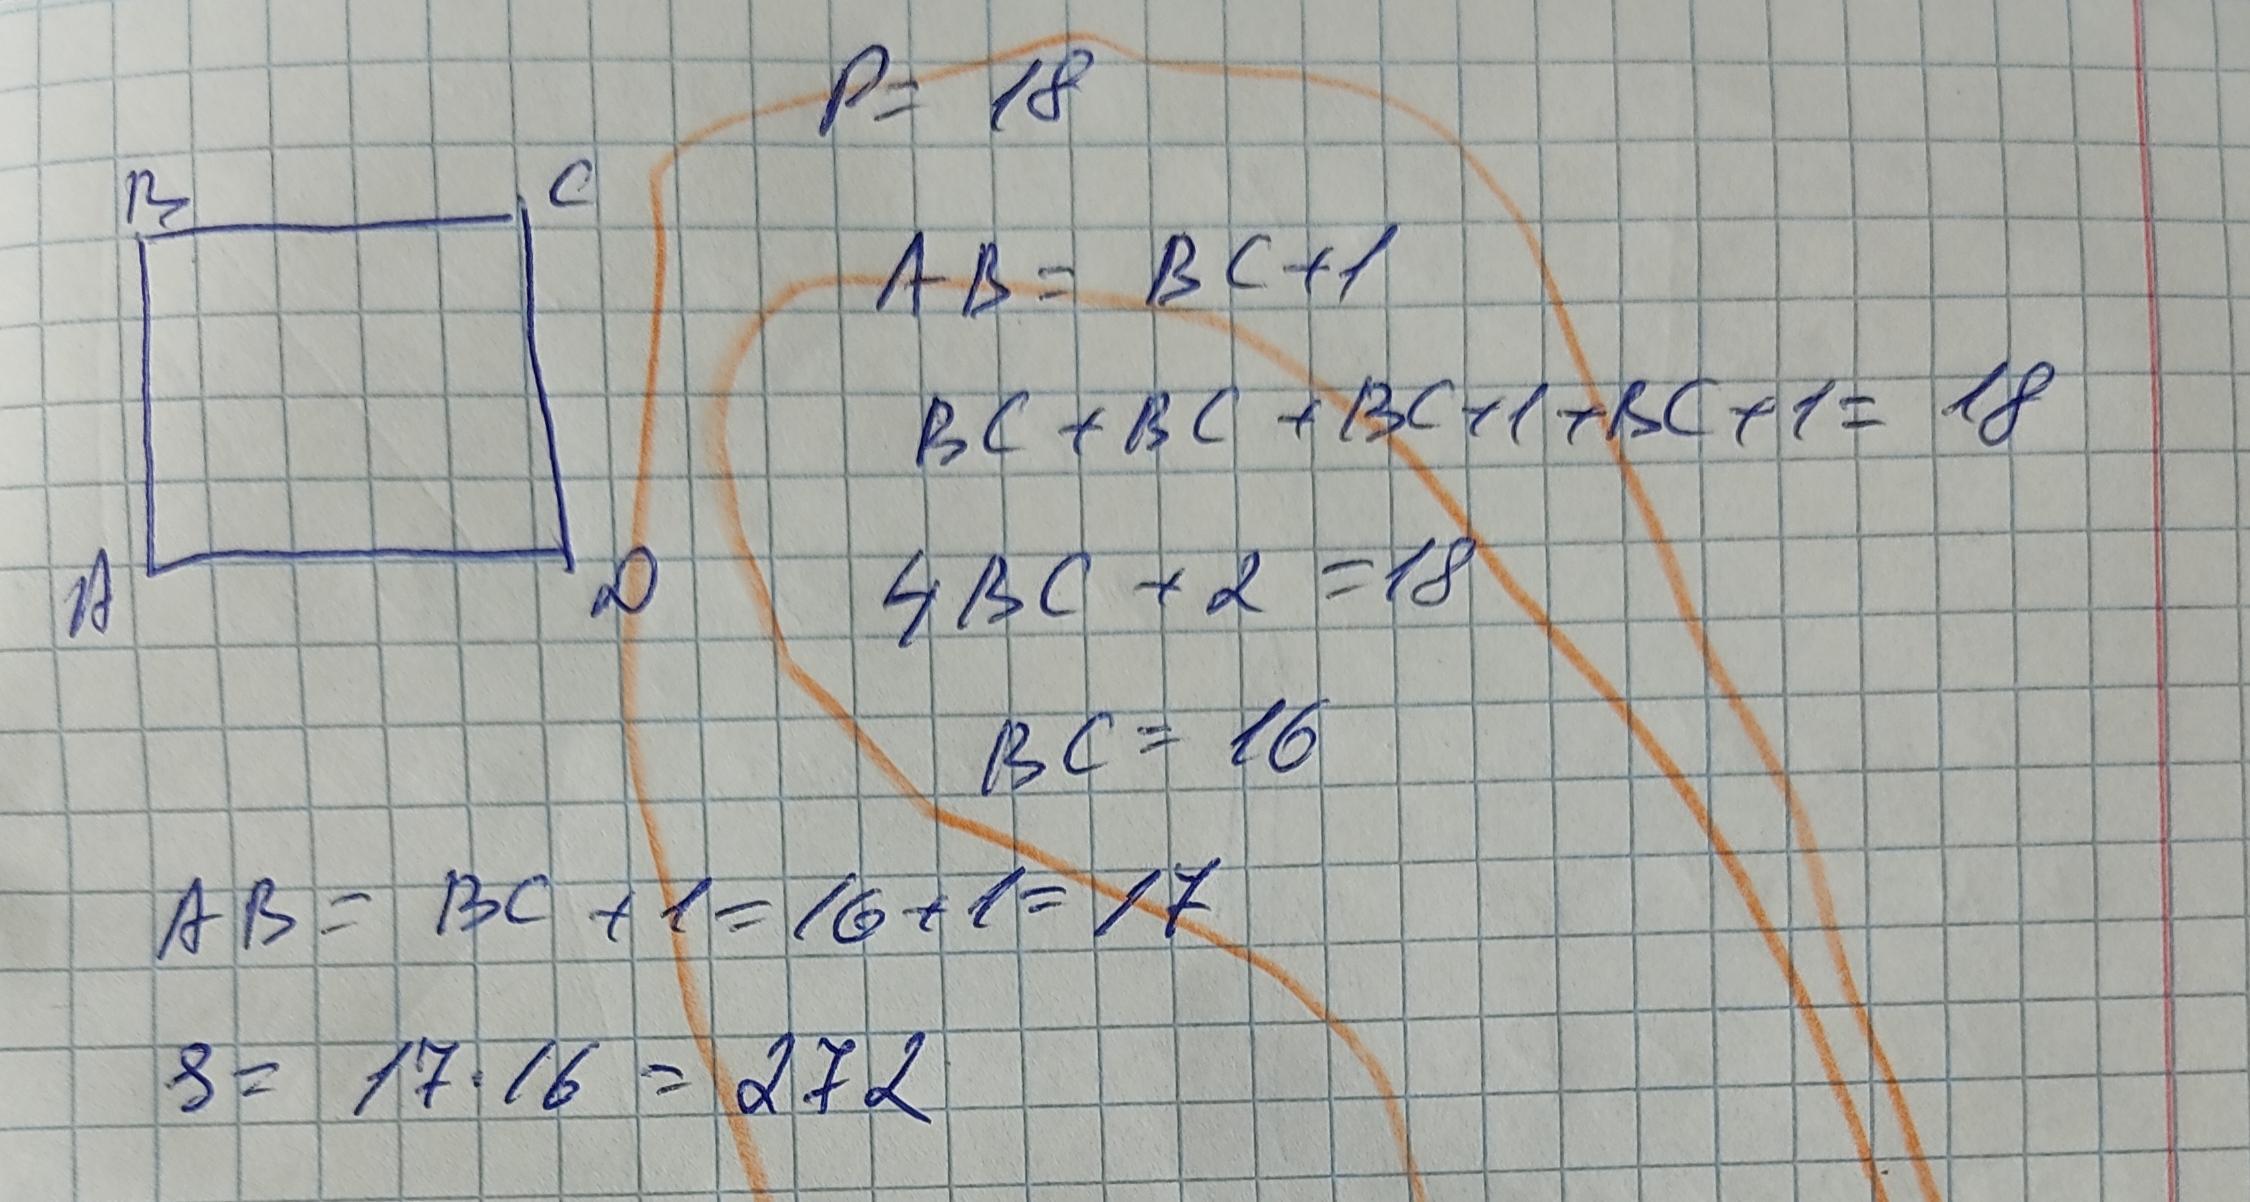 P= 18
B C
AB= BC+1
BC+BC+BC+1+BC+1= 18
A D
4BC+2=18
BC= 16
AB= BC+1=16+1=17
S= 17·16=272